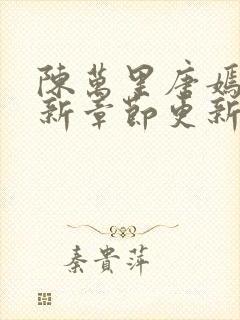 陳萬里唐嫣
新章節更新
秦貴萍